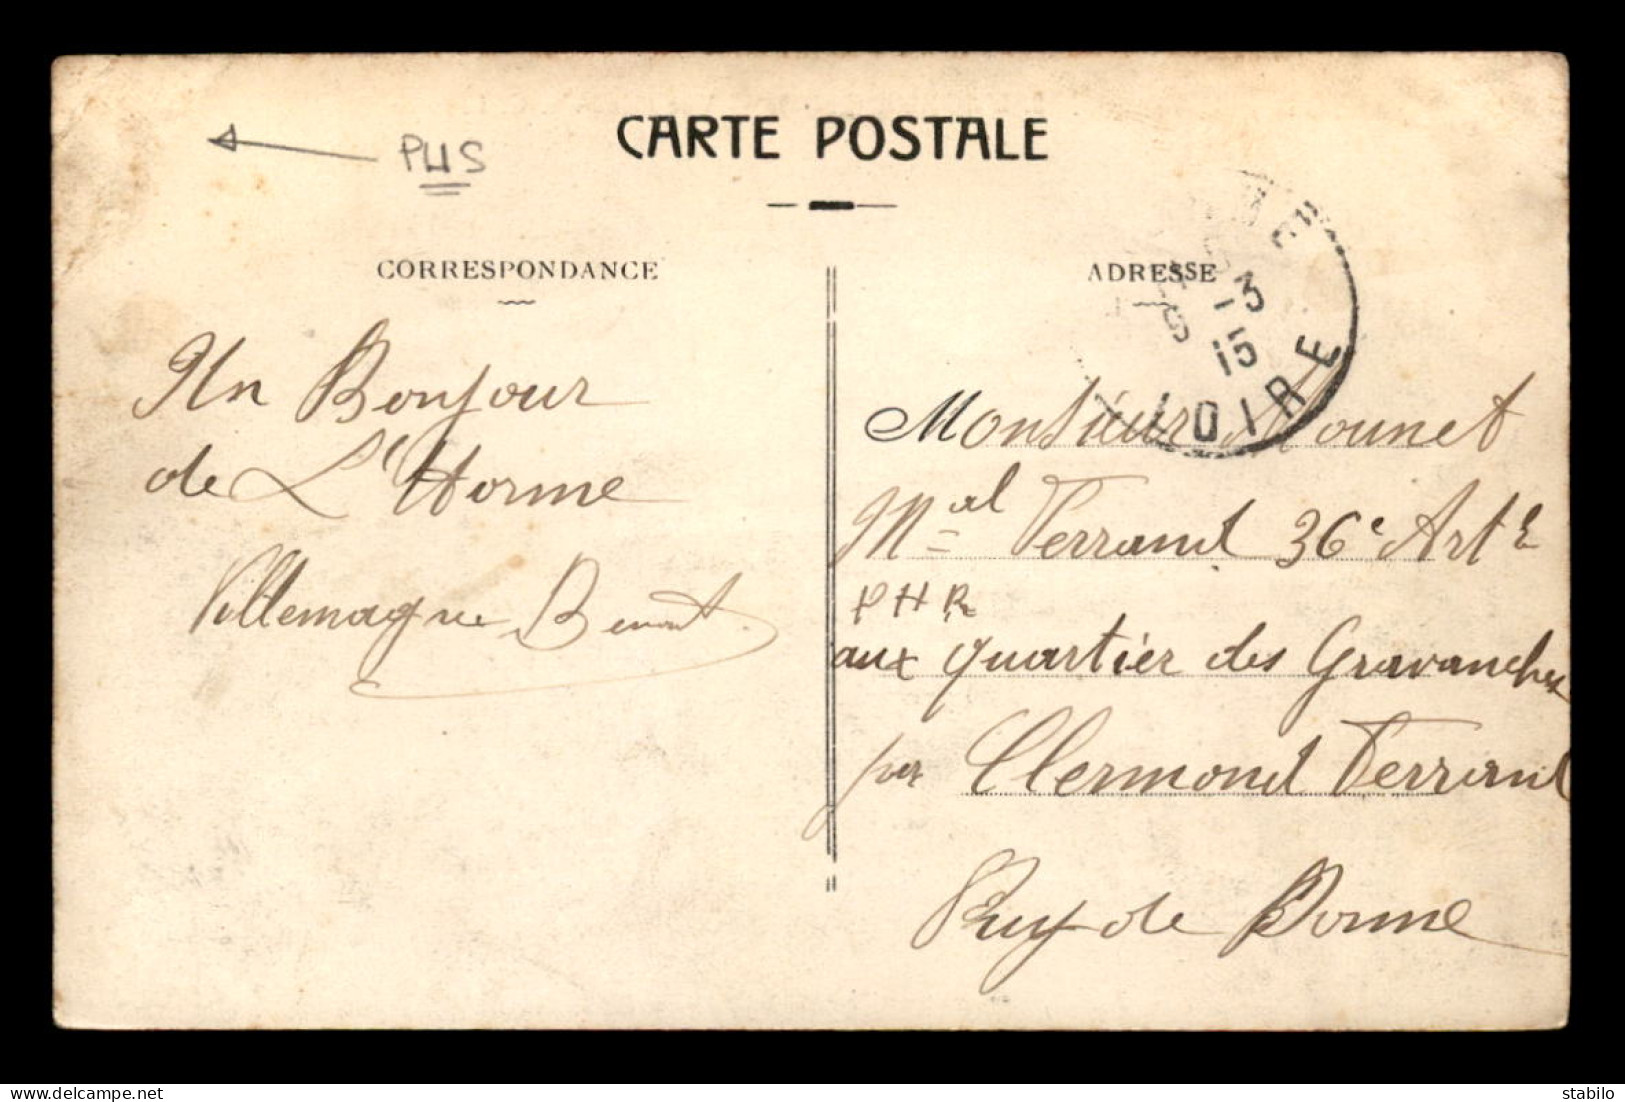 PLIS
CARTE POSTALE
CORRESPONDANCE
Un Bonjour
de L'Horme
Villemagne Benoit
ADRESSE
-3
15
LOIRE
Monsieur Mounet
Mal Ferrand 36e Art e
P H R
aux quartier des Gravanches
par Clermond Ferrand
Puy de Dome
delcampe.net
stabilo